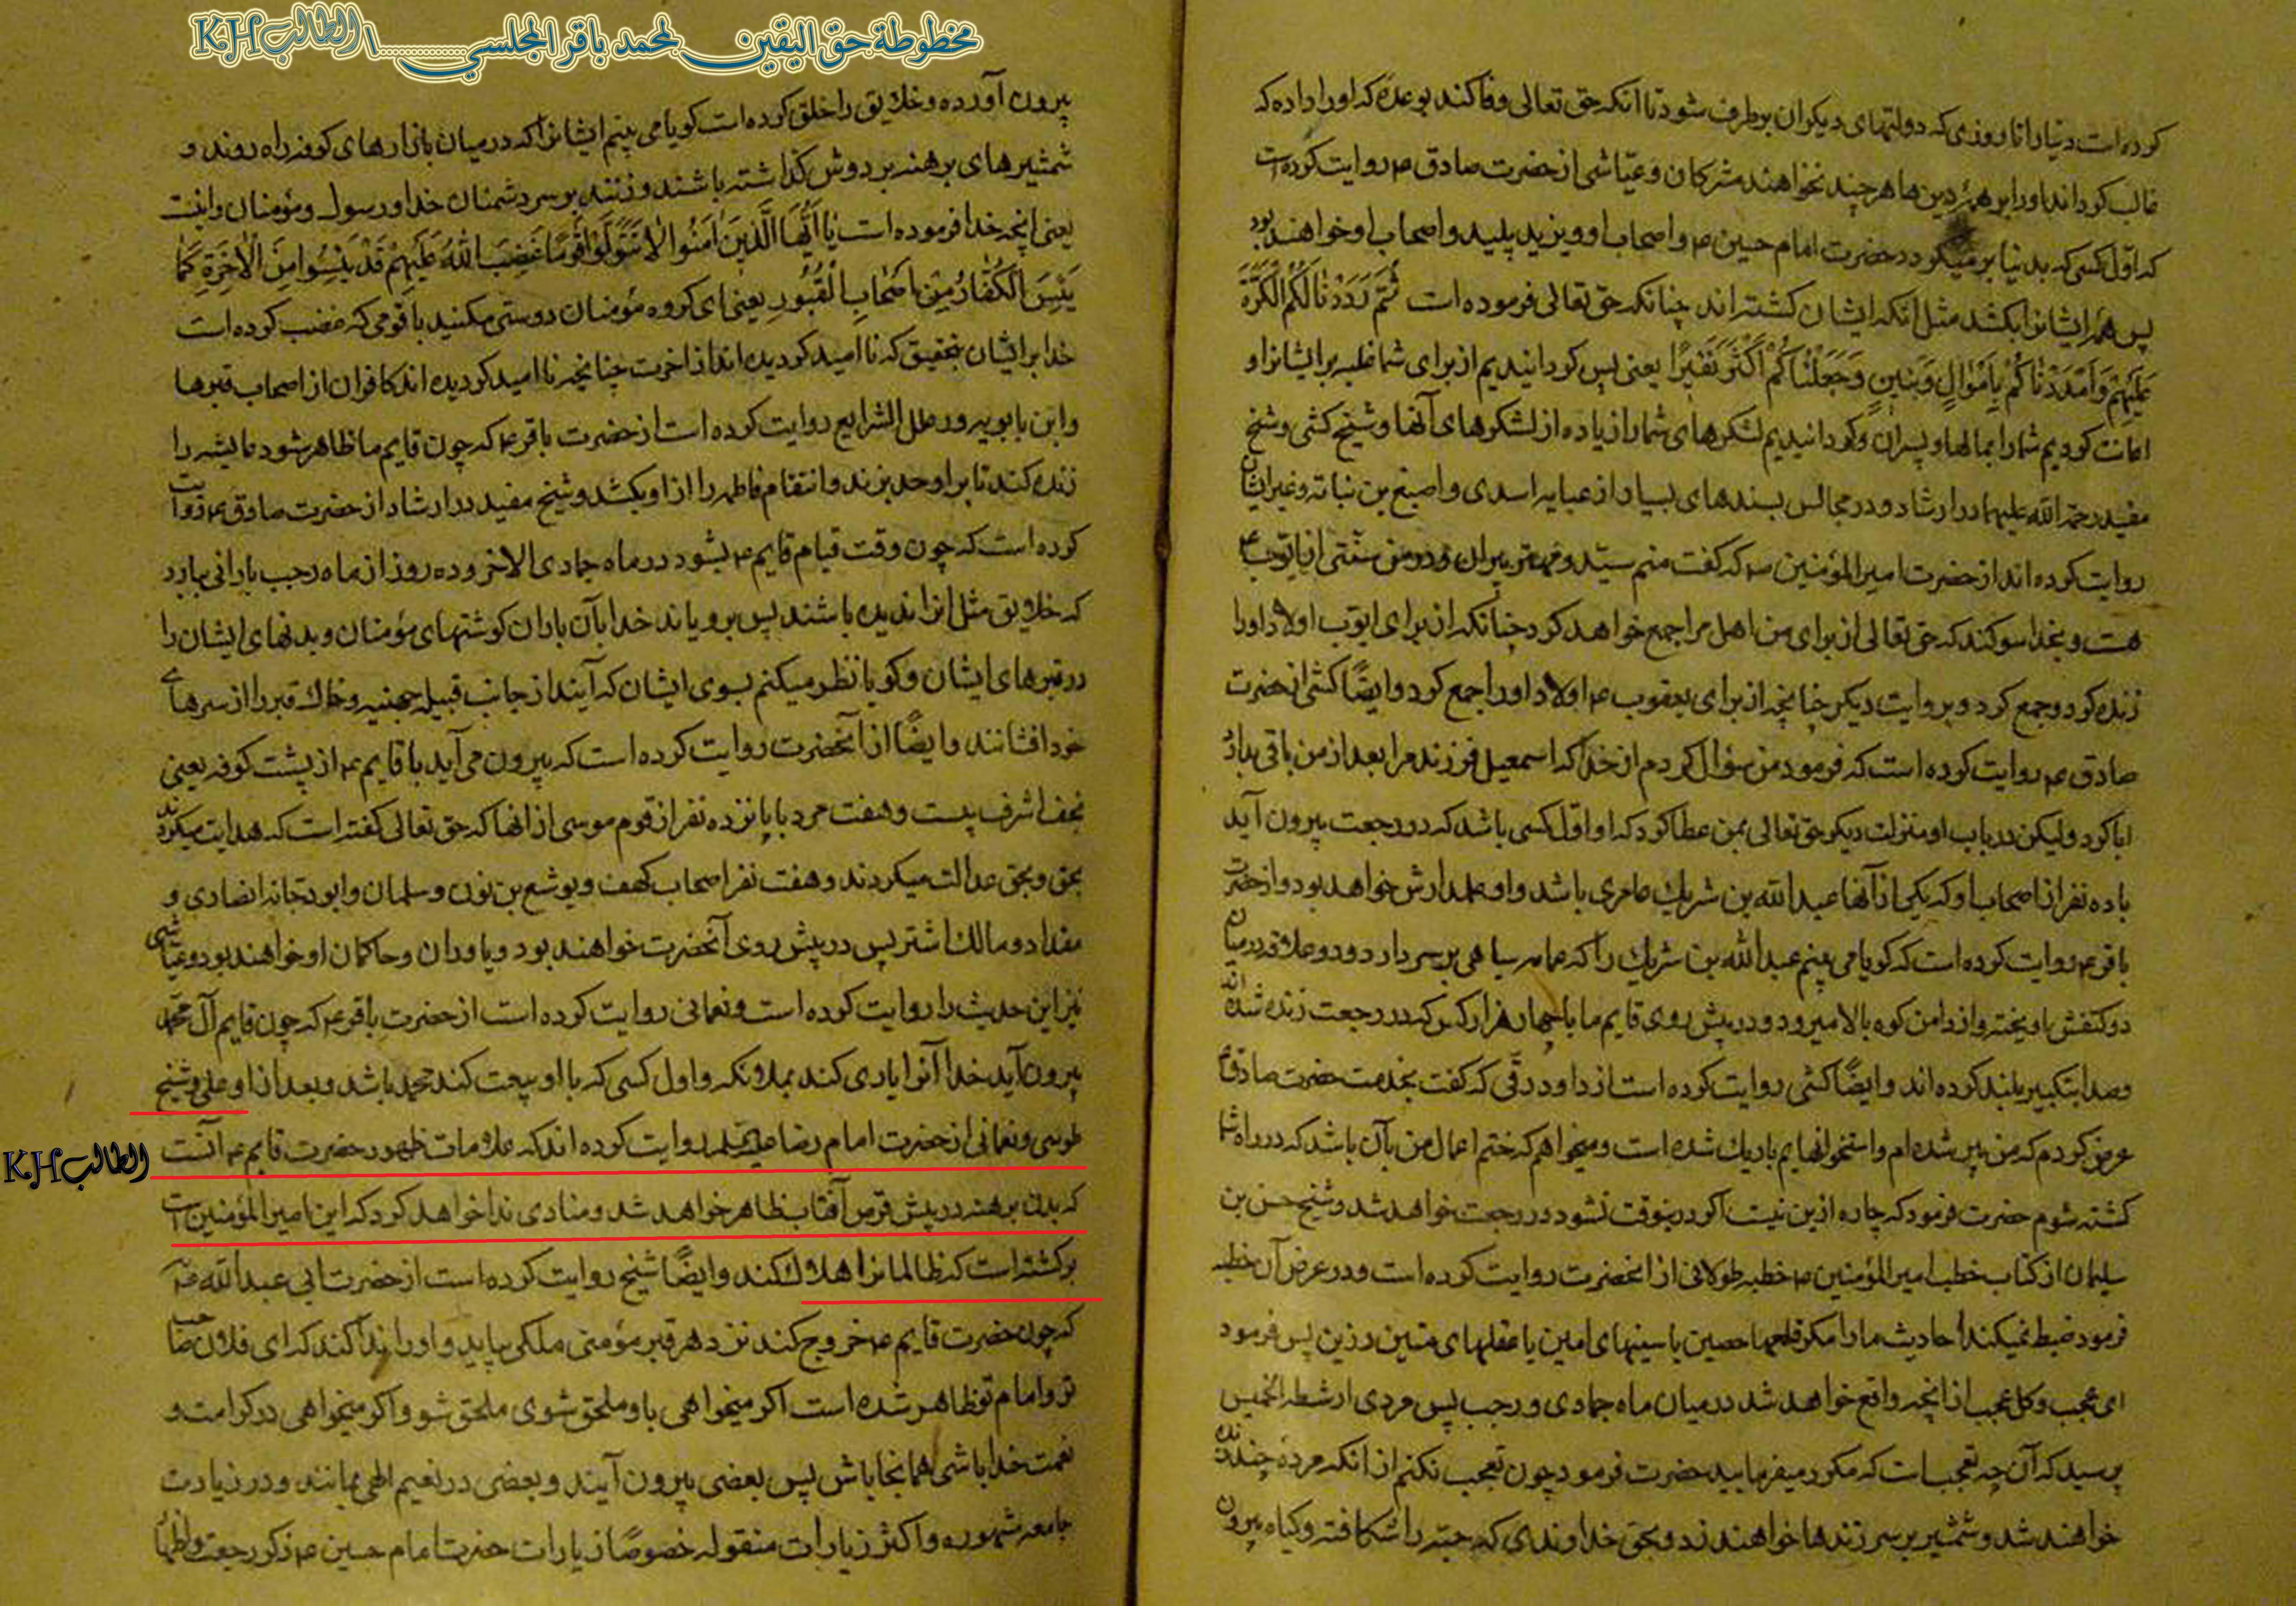 مخطوطة حق اليقين لمحمد باقر المجلسي ..........\ الطالب KH
كرده است دنیا را تا روزی که دولتهای دیکران برطرف شود تا آنکه حق تعالی وفا کند بوعدهٔ که او را داده که
غالب کرداند او را بر همهٔ دین ها هر چند نخواهند مشرکان و عیّاشی از حضرت صادق ع روایت کرده است
که اوّل کسی که بدنیا بر میکردد حضرت امام حسین ع و اصحاب او و یزید پلید و اصحاب او خواهند بود
پس همهٔ ایشانرا بکشد مثل آنکه ایشان کشته اند چنانکه حق تعالی فرموده است ثُمَّ رَدَدْنَا لَكُمُ الْكَرَّةَ
عَلَيْهِمْ وَأَمْدَدْنَاكُمْ بِأَمْوَالٍ وَبَنِينَ وَجَعَلْنَاكُمْ أَكْثَرَ نَفِيرًا یعنی پس کردانیدیم از برای شما غلبه بر ایشانرا و
اعانت کردیم شما را بمالها و پسران و کردانیدیم لشکرهای شما را زیاده از لشکرهای آنها و شیخ کشی و شیخ
مفید رحمة الله علیهما در ارشاد و در مجالس بسندهای بسیار از عبایه اسدی و اصبغ بن نباته و غیر ایشان
روایت کرده اند از حضرت امیر المؤمنین ص که کفت منم سیّد و مهتر پیران و در من سنّتی از ایّوب ع
هست و بخدا سوکند که حق تعالی از برای من اهل مرا جمع خواهد کرد چنانکه از برای ایوب اولاد او را
زنده کرد و جمع کرد و بروایت دیکر چنانچه از برای یعقوب ع اولاد او را جمع کرد و ایضًا کشی از حضرت
صادق ع روایت کرده است که فرمود من سؤال کردم از خدا که اسمعیل فرزند مرا بعد از من باقی بدارد
ابا کرد ولیکن در باب او منزلت دیکر حق تعالی بمن عطا کرد که او اوّل کسی باشد که در رجعت بیرون آید
با ده نفر از اصحاب او که یکی از آنها عبد الله بن شریك عامری باشد و او علمدارش خواهد بود و از حضرت
باقر ع روایت کرده است که کویا می بینم عبد الله بن شریك را که عمامه سیاهی بر سر دارد و دو علاقه در میان
دو کتفش آویخته و از دامن کوه بالا میرود و در پیش روی قایم ما با چهار هزار کس که در رجعت زنده شده اند
و صدا بتکبیر بلند کرده اند و ایضًا کشی روایت کرده است از داود رقّی که کفت بخدمت حضرت صادق ع
عرض کردم که من پیر شده ام و استخوانهایم باریك شده است و میخواهم که ختم اعمال من بآن باشد که در راه شما
کشته شوم حضرت فرمود که چاره از این نیست اکر در این وقت نشود در رجعت خواهد شد و شیخ حسن بن
سلیمان از کتاب خطب امیر المؤمنین ع خطبه طولانی از آنحضرت روایت کرده است و در عرض آن خطبه
فرمود ضبط نمیکند احادیث ما را مکر قلعها حصین یا سینهای امین یا عقلهای متین رزین پس فرمود
ای عجب و کل عجب از آنچه واقع خواهد شد در میان ماه جمادی و رجب پس مردی از شرطة الخمیس
پرسید که آن چه تعجب است که مکرر میفرمایید حضرت فرمود چون تعجب نکنم از آنکه مردهٔ چند زنده
خواهند شد و شمشیر بر سر زندها خواهند زد و بحق خداوندی که حبّه را شکافته و کیاه بیرون
بیرون آورده و خلایق را خلق کرده است کویا می بینم ایشانرا که در میان بازارهای کوفه راه روند و
شمشیرهای برهنه بر دوش کذاشته باشند و زنند بر سر دشمنان خدا و رسول و مؤمنان و اینست
یعنی آنچه خدا فرموده است یَا أَيُّهَا الَّذِينَ آمَنُوا لَا تَتَوَلَّوْا قَوْمًا غَضِبَ اللَّهُ عَلَيْهِمْ قَدْ يَئِسُوا مِنَ الْآخِرَةِ كَمَا
يَئِسَ الْكُفَّارُ مِنْ أَصْحَابِ الْقُبُورِ یعنی ای کروه مؤمنان دوستی مکنید با قومی که غضب کرده است
خدا بر ایشان بتحقیق که نا امید کردیده اند از آخرت چنانچه نا امید کردیده اند کافران از اصحاب قبرها
و ابن بابویه در علل الشرایع روایت کرده است از حضرت باقر ع که چون قایم ما ظاهر شود عایشه را
زنده کند تا بر او حد بزند و انتقام فاطمه را از او بکشد و شیخ مفید در ارشاد از حضرت صادق ع روایت
کرده است که چون وقت قیام قایم ع بشود در ماه جمادی الاخر و ده روز از ماه رجب بارانی ببارد
که خلایق مثل انرا ندیده باشند پس برویاند خدا بآن باران کوشتهای مؤمنان و بدنهای ایشان را
در قبرهای ایشان و کویا نظر میکنم بسوی ایشان که آیند از جانب قبیله جهنیه و خاك قبر را از سرهای
خود افشانند و ایضًا از آنحضرت روایت کرده است که بیرون می آید با قایم ع از پشت کوفه یعنی
نجف اشرف بیست و هفت مرد با پانزده نفر از قوم موسی از آنها که حق تعالی کفته است که هدایت میکردند
بحق و بحق عدالت میکردند و هفت نفر اصحاب کهف و یوشع بن نون و سلمان و ابو دجانه انصاری و
مقداد و مالك اشتر پس در پیش روی آنحضرت خواهند بود و یاوران و حاکمان او خواهند بود و عیّاشی
نیز این حدیث را روایت کرده است و نعمانی روایت کرده است از حضرت باقر ع که چون قایم آل محمّد
بیرون آید خدا آنرا یاری کند بملائکه و اول کسی که با او بیعت کند محمد باشد و بعد از او علی و شیخ
طوسی و نعمانی از حضرت امام رضا علیه السلام روایت کرده اند که علامات ظهور حضرت قایم ع آنست
که بدن برهنه در پیش قرص آفتاب ظاهر خواهد شد و منادی ندا خواهد کرد که این امیر المؤمنین است
برکشته است که ظالمانرا هلاك کند و ایضًا شیخ روایت کرده است از حضرت ابی عبد الله ع
که چون حضرت قایم ع خروج کند نزد هر قبر مؤمنی ملکی بیاید و او را ندا کند که ای فلان صاحب
تو و امام تو ظاهر شده است اکر میخواهی باو ملحق شوی ملحق شو و اکر میخواهی در کرامت و
نعمت خدا باشی همانجا باش پس بعضی بیرون آیند و بعضی در نعیم الهی بمانند و در زیارت
جامعه مشهوره و اکثر زیارات منقوله خصوصًا زیارات حضرت امام حسین ع ذکر رجعت
الطالب KH